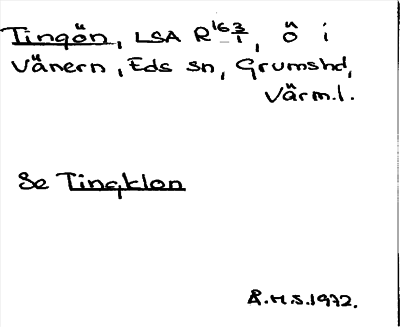 Tingön, LSA R 163/1, ö i
Vänern, Eds sn, Grumshd,
Värml.
Se Tingklon
Å.H.S. 1972.